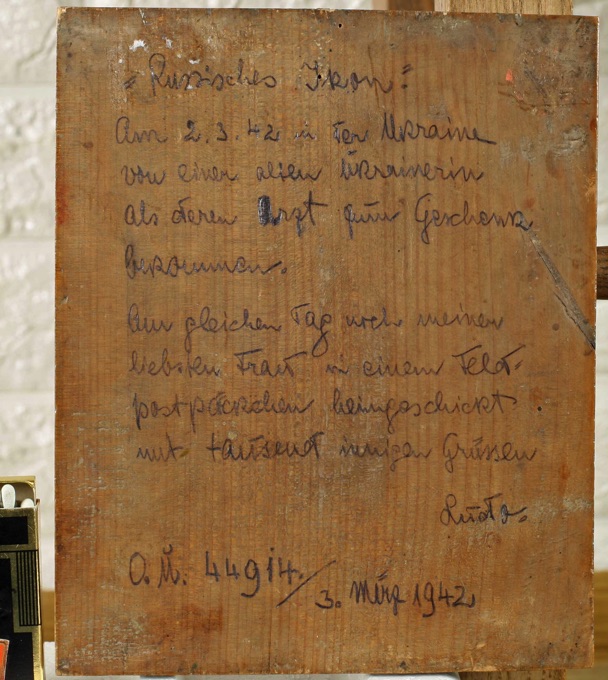 "Russisches Ikon".
Am 2.3.42 in der Ukraine
von einer alten Ukrainerin
als deren Arzt zum Geschenk
bekommen.
Am gleichen Tag noch meiner
liebsten Traut in einem Feld-
postpäckchen heimgeschickt.
mit tausend innigen Grüssen
Ludo.
O.U. 44914. / 3. März 1942